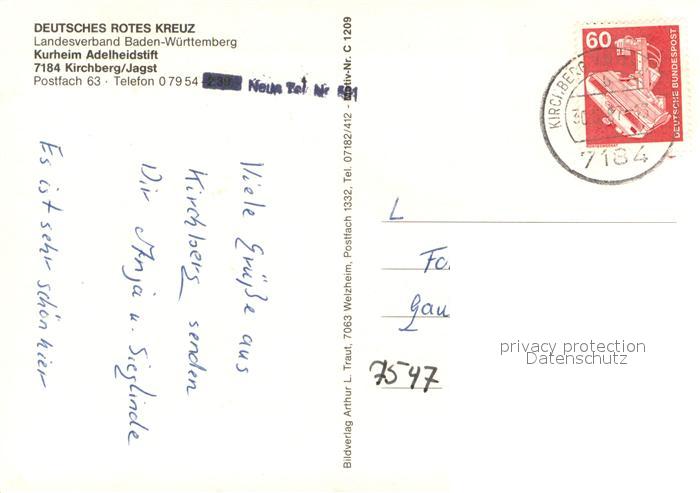 DEUTSCHES ROTES KREUZ
Landesverband Baden-Württemberg
Kurheim Adelheidstift
7184 Kirchberg/Jagst
Postfach 63 · Telefon 0 79 54 - Neue Tel Nr
Viele Grüße aus
Kirchberg senden
Dir Anja u. Sieglinde
Es ist sehr schön hier
Bildverlag Arthur L. Traut, 7063 Welzheim, Postfach 1332, Tel. 07182/412 - Motiv-Nr. C 1209
60
DEUTSCHE BUNDESPOST
KIRCHBERG
7184
L
Fo
Gau
7547
privacy protection
Datenschutz